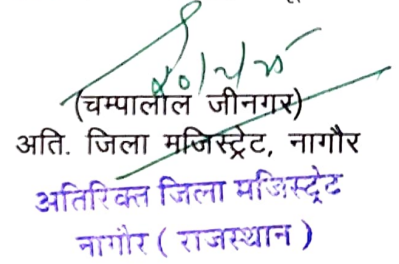 (चम्पालाल जीनगर)
अति. जिला मजिस्ट्रेट, नागौर
अतिरिक्त जिला मजिस्ट्रेट
नागौर ( राजस्थान )